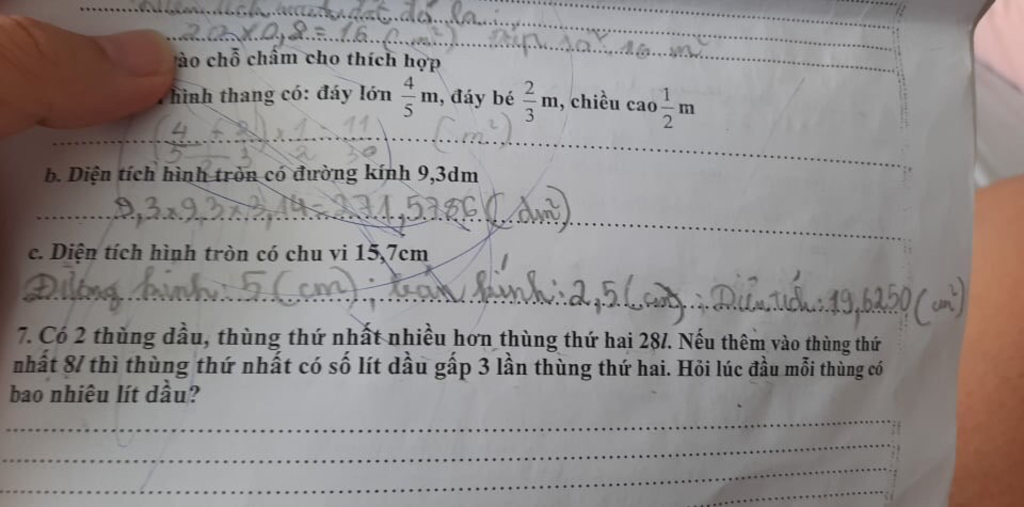 Diện tích mảnh đất đó là:
20 x 0,8 = 16 (m²)
vào chỗ chấm cho thích hợp
hình thang có: đáy lớn 4/5 m, đáy bé 2/3 m, chiều cao 1/2 m
(m²)
b. Diện tích hình tròn có đường kính 9,3dm
9,3 x 9,3 x 3,14 = 271,5786 (dm²)
c. Diện tích hình tròn có chu vi 15,7cm
Đường kính: 5 (cm); bán kính: 2,5 (cm); Diện tích: 19,6250 (cm²)
7. Có 2 thùng dầu, thùng thứ nhất nhiều hơn thùng thứ hai 28l. Nếu thêm vào thùng thứ
nhất 8l thì thùng thứ nhất có số lít dầu gấp 3 lần thùng thứ hai. Hỏi lúc đầu mỗi thùng có
bao nhiêu lít dầu?